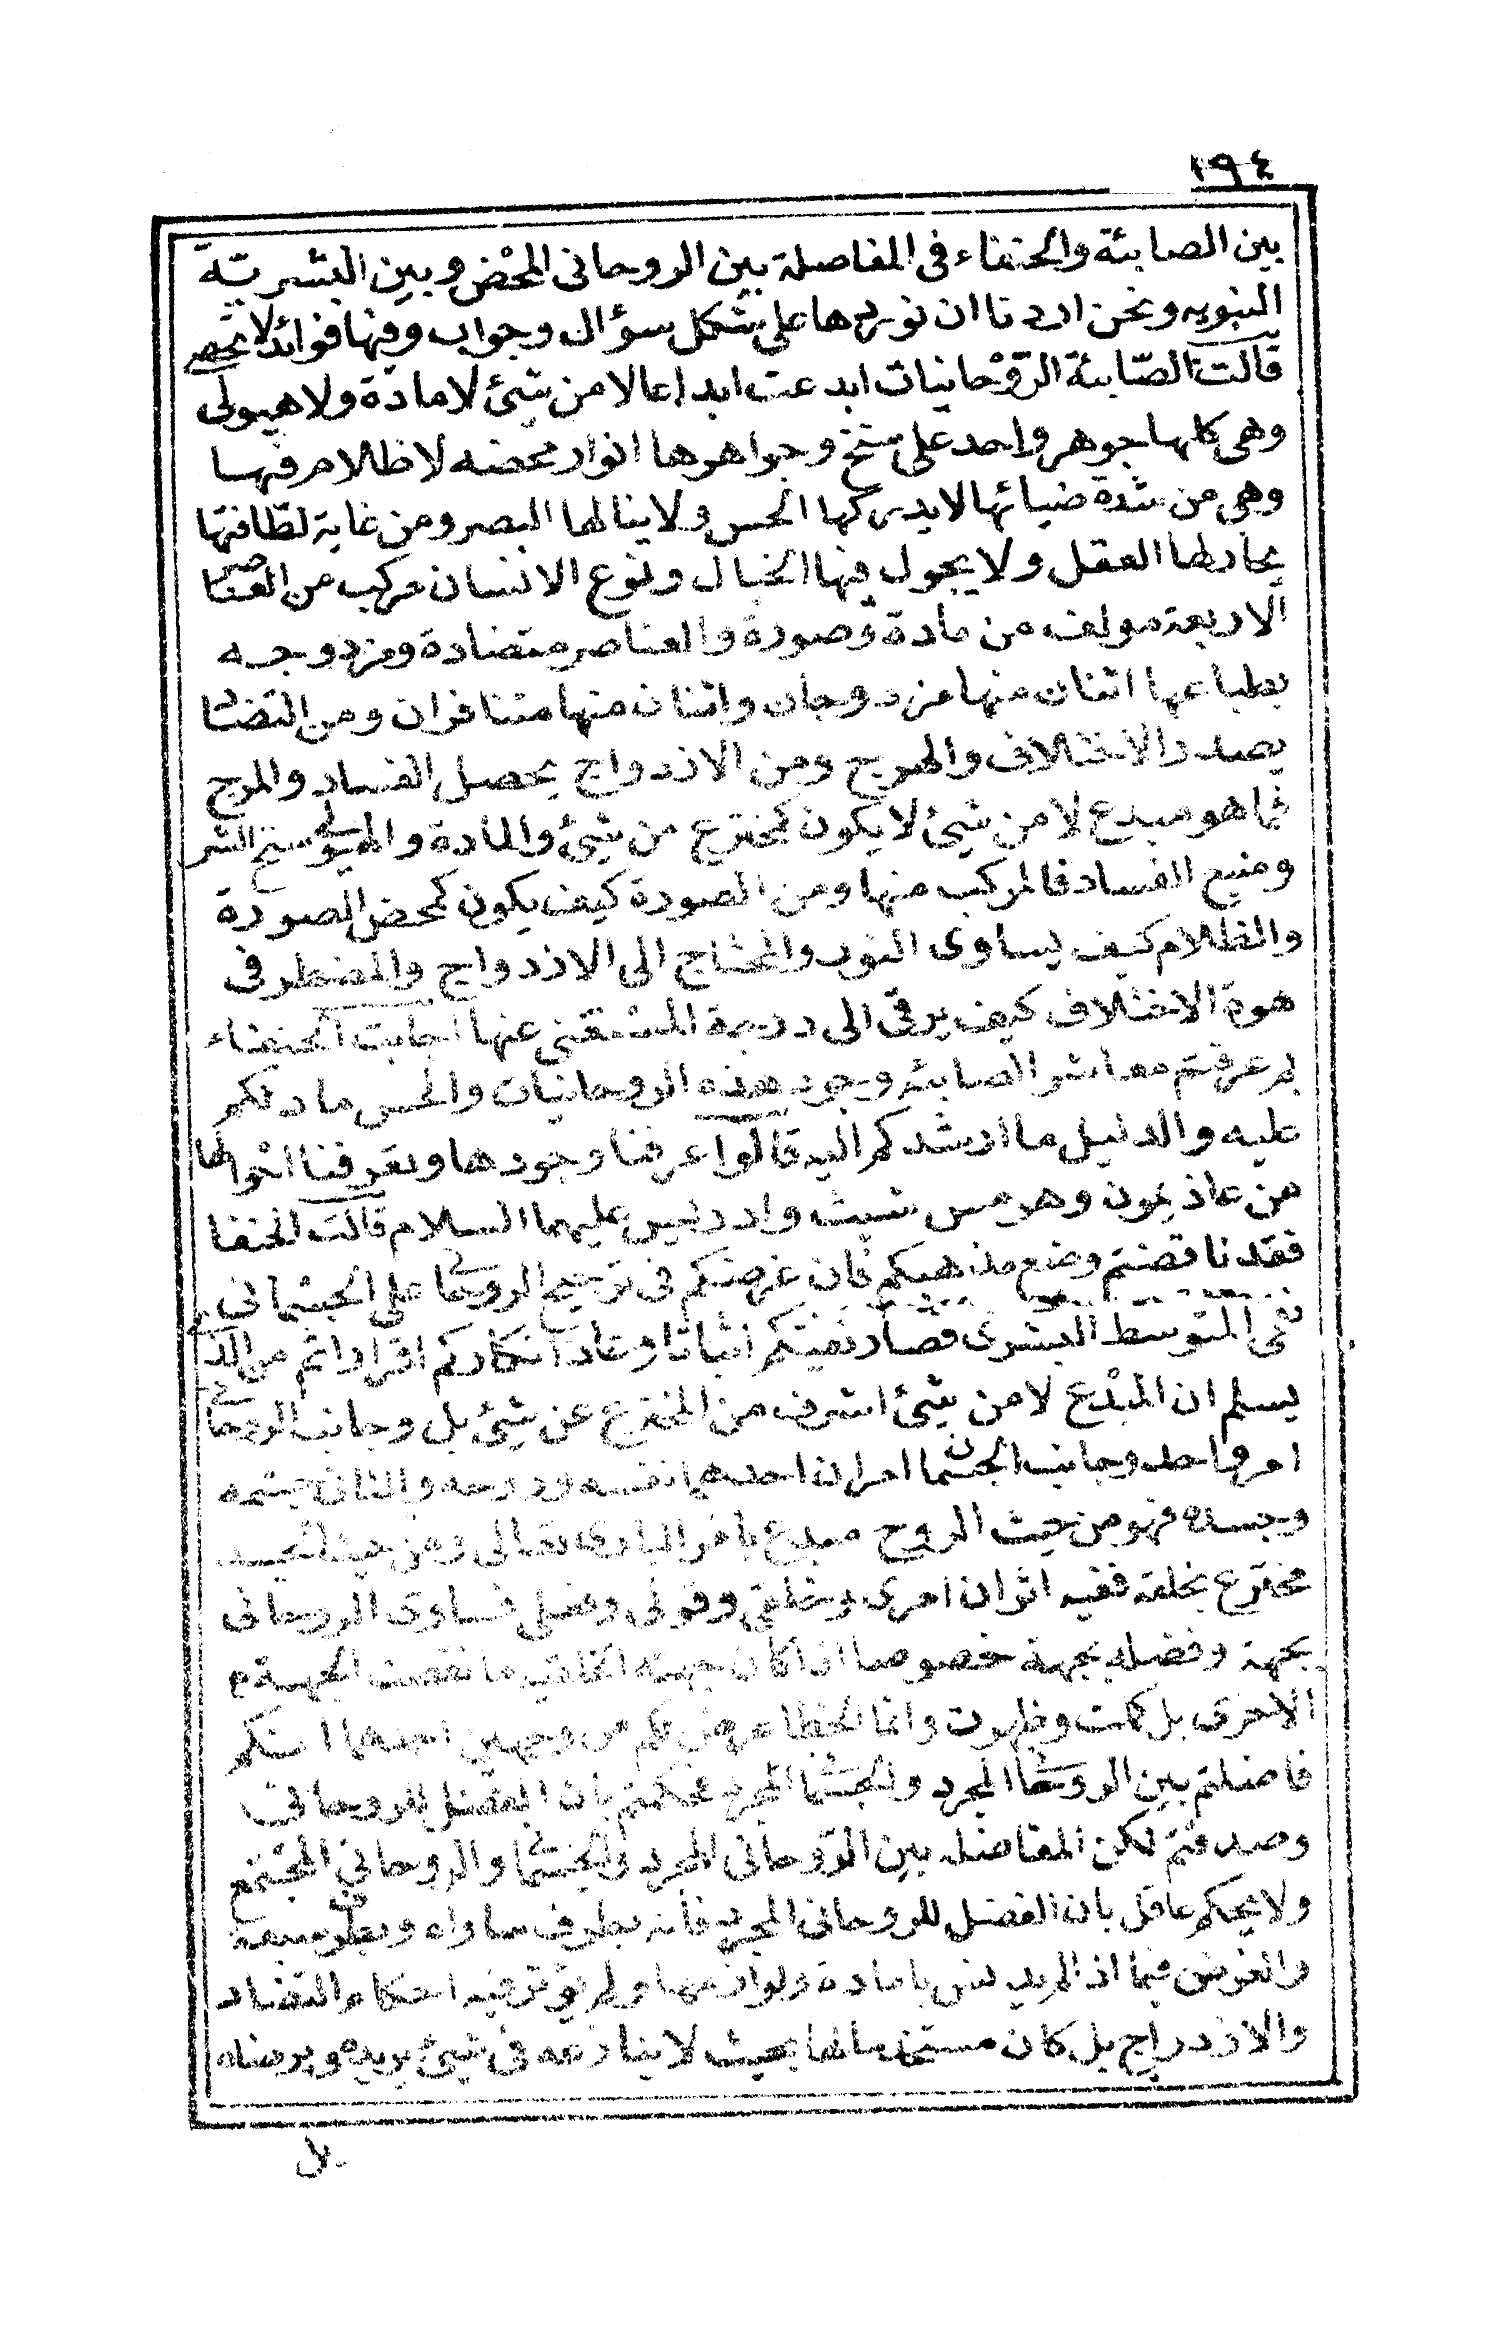 ١٩٤
بين الصابئة والحنفاء فى المفاصلة بين الروحانى المحْض وبين البشريّة
النبويه ونحن اردنا ان نوردها على شكل سؤال وجواب وفيها فوائد لا تحصى
قالت الصّابئة الرّوْحانيات ابدعت ابداعا لا من شيئ لا مادة ولا هيولى
وهى كلها جوهر واحد على سنخ وجواهرها انوار محضه لا ظلام فيها
وهى من شدة ضيائها لا يدركها الحس ولا ينالها البصر ومن غاية لطافتها
يحار لها العقل ولا يجول فيها الخيال ونوع الانسان مركب من العناصر
الاربعة مولف من مادة وصورة والعناصر متضادة ومزدوجه
بطباعها اثنان منها مزدوجان واثنان منها متنافران ومن التضاد
يصدر الاختلاف والهرج ومن الازدواج يحصل الفساد والمرج
فما هو مبدع لا من شيئ لا يكون كمخترع من شيئ والمادة والهيولى سنخ الشر
ومنبع الفساد فالمركب منها ومن الصورة كيف يكون كمحض الصورة
والظلام كيف يساوى النور والمحتاج الى الازدواج والمضطر فى
هوة الاختلاف كيف يرقى الى درجة المستغنى عنها اجابت الحنفاء
بم عرفتم معاشر الصابئة وجود هذه الروحانيات والحس ما دلكم
عليه والدليل ما ارشدكم اليه قالوا عرفنا وجودها وتعرفنا احوالها
من عاذيمون وهرمس شيث وادريس عليهما السلام قالت الحنفا
فقد ناقضتم وضع مذهبكم فان غرضكم فى ترجيح الروحانى على الجسمانى
نفى المتوسط البشرى فصار نفيتكم اثباتا وعاد انكاركم اقرارا ثم من الذى
يسلم ان المبْدع لا من شيئ اشرف من المخترع عن شيئ بل وجانب الروحانى
امر واحد وجانب الجسمانى امران احدهما نفسه وروحه والثانى جسمه
وجسده فهو من حيث الروح مبدع بامر البارى تعالى ومن حيث الجسد
مخترع بخلقه ففيه اثران امرى وخلقى وقولى وفعلى فساوى الروحانى
بجهة وفضله بجهة خصوصا اذا كان جهته الخلقيه ما نقصت الجهة
الاخرى بل كملت وظهرت وانما الخطا عرض لكم من وجهين احدهما انكم
فاضلتم بين الروحانى المجرد والجسمانى المجرد فحكمتم بان الفضل للروحانى
وصدقتم لكن المفاضله بين الرّوحانى المجرد والجسمانى والروحانى المجْتمع
ولا يحكم عاقل بان الفضل للروحانى المجرد فانه بطرف ساواه وبطرف سبقه
والغرض فيما اذا لم يدنس بالمادة ولوازمها ولم يؤثر فيه احكام التضاد
والازدواج بل كان مستخدما لها بحيث لا ينازعه فى شيئ يريده ويرضاه
بل